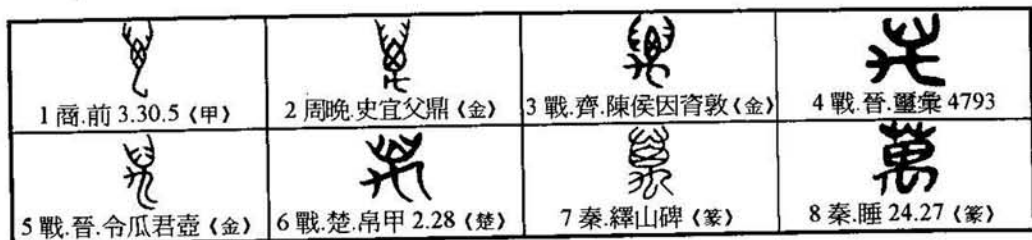 1 商.前 3.30.5《甲》 2 周晚.史宜父鼎《金》 3 戰.齊.陳侯因𬯚敦《金》 4 戰.晉.璽彙 4793
5 戰.晉.令瓜君壺《金》 6 戰.楚.帛甲 2.28《楚》 7 秦.繹山碑《篆》 8 秦.睡 24.27《篆》